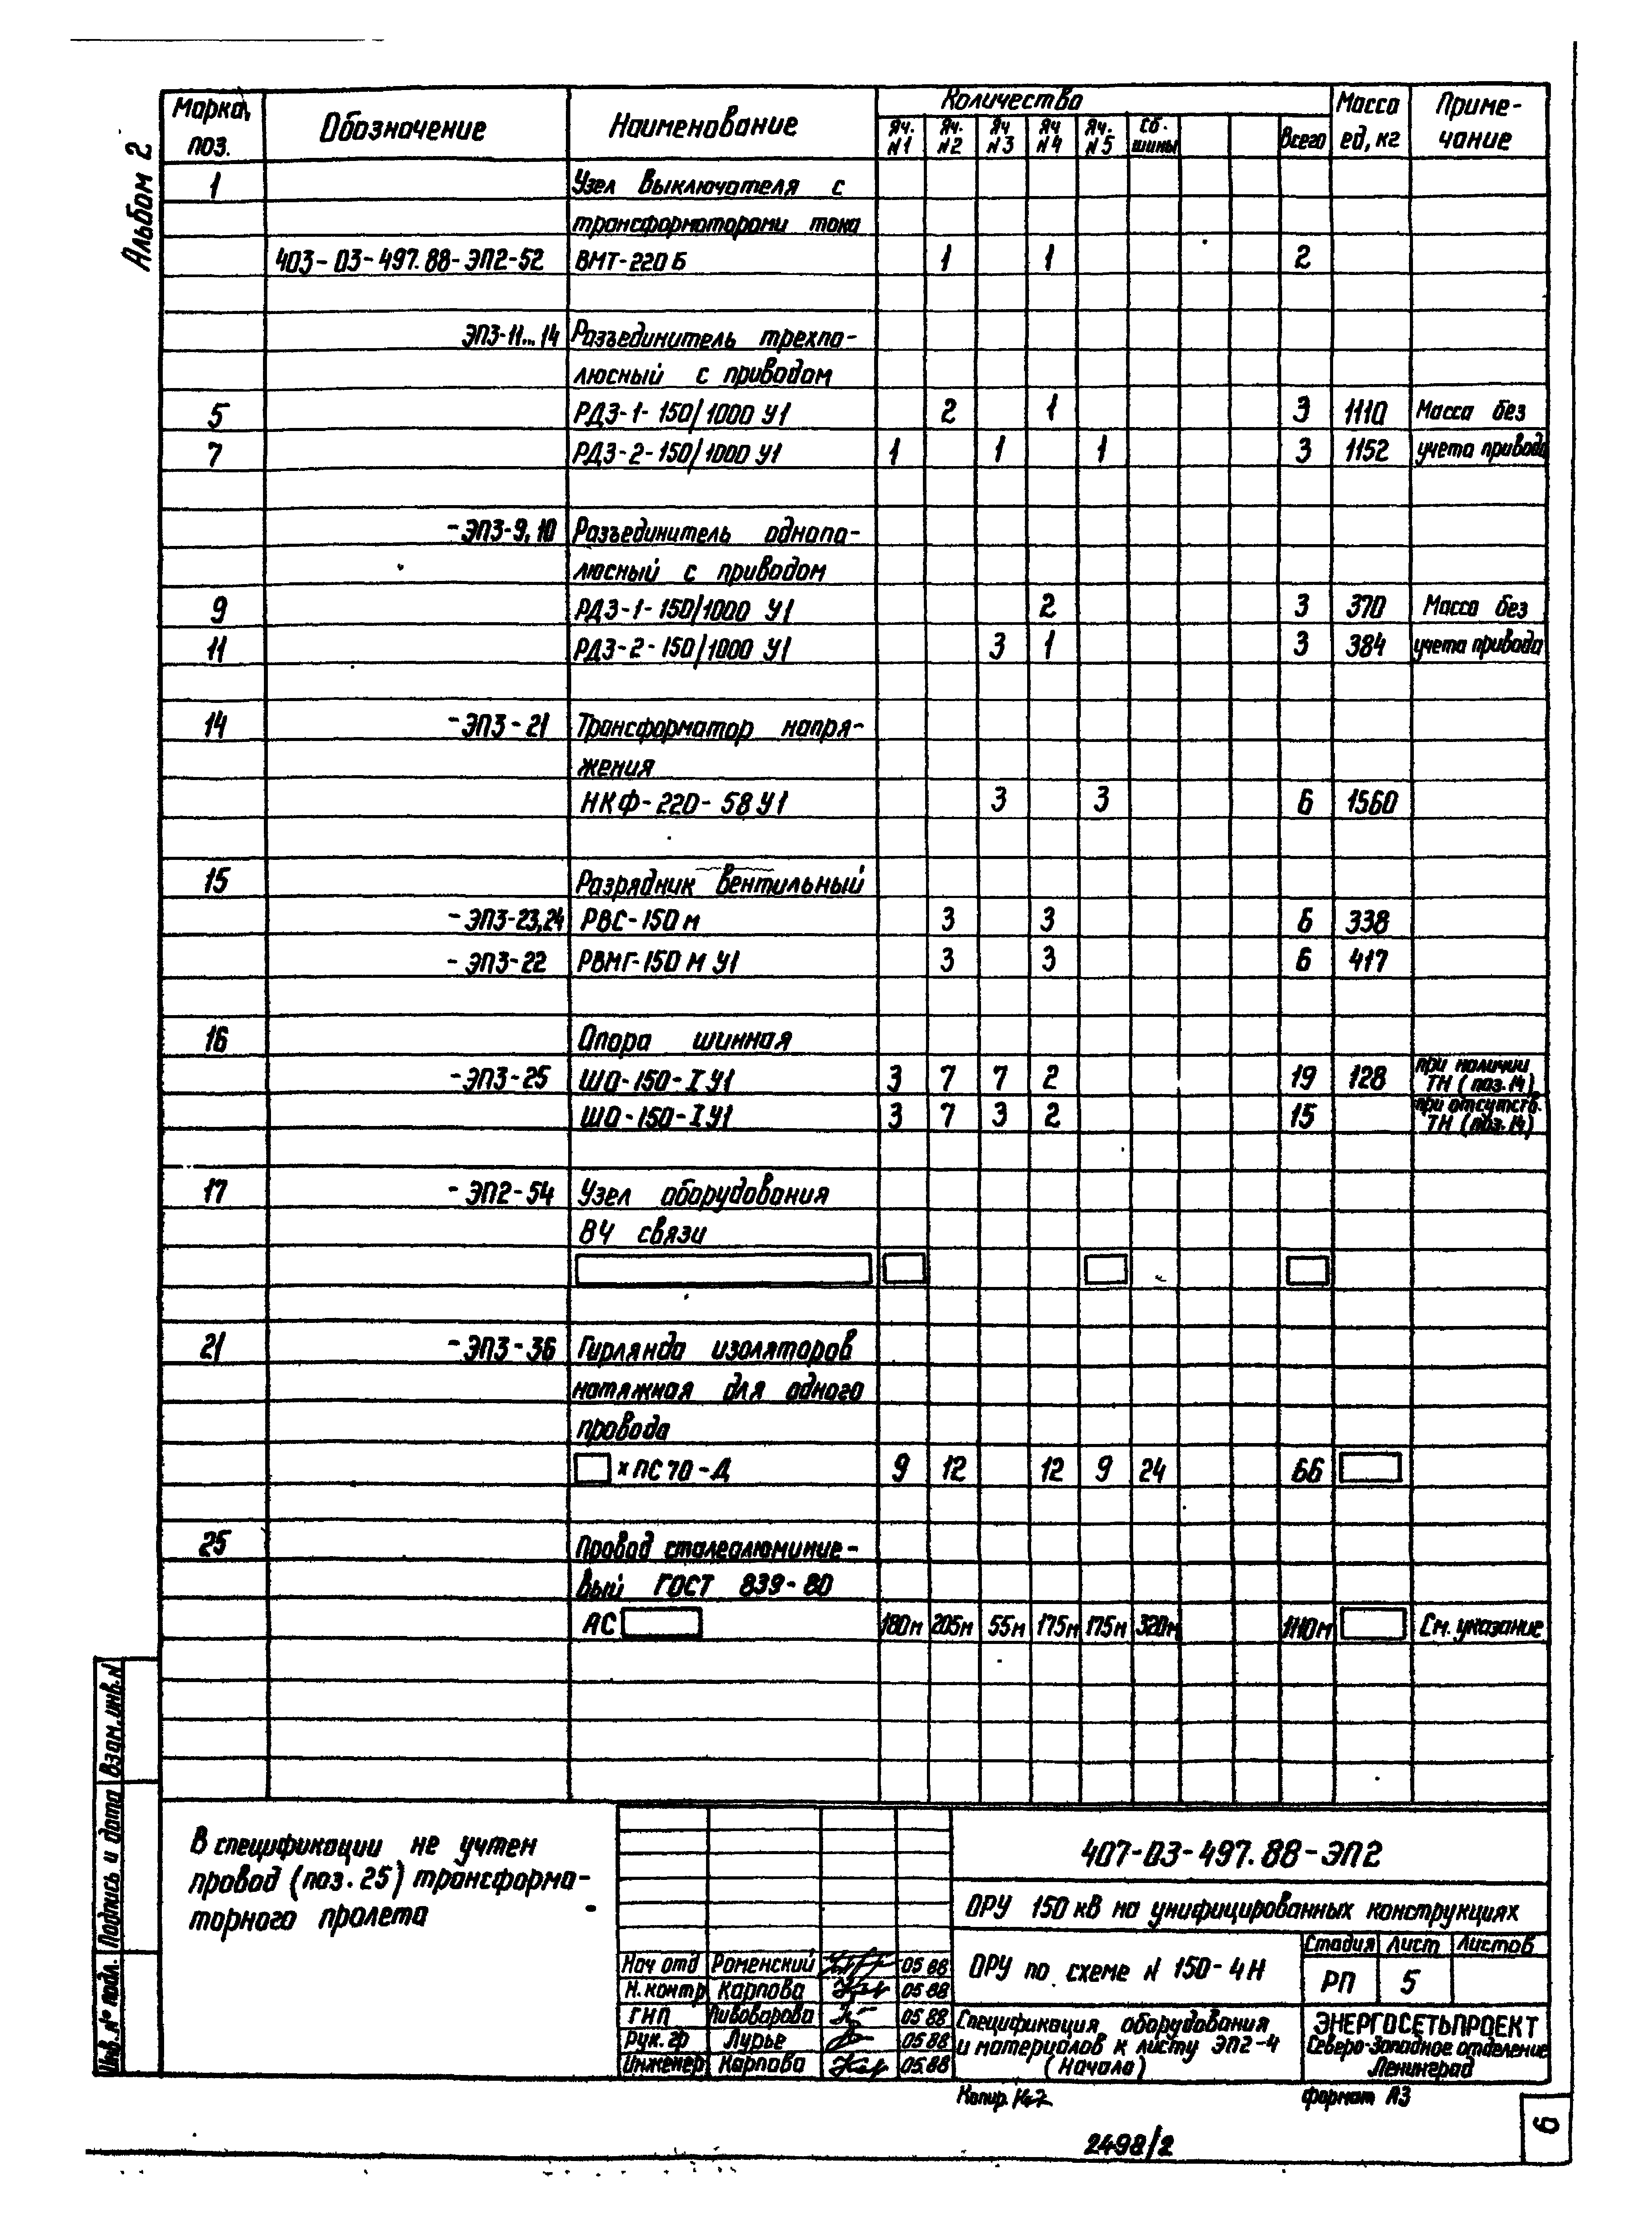 Альбом 2
Марка, поз. Обозначение Наименование Количество Масса ед, кг Приме-чание
Яч. N1 Яч. N2 Яч N3 Яч N4 Яч. N5 Сб. шины Всего
1 Узел выключателя с
трансформаторами тока
403-03-497.88-ЭП2-52 ВМТ-220 Б 1 1 2
ЭП3-11...14 Разъединитель трехпо-
люсный с приводом
5 РДЗ-1-150/1000 У1 2 1 3 1110 Масса без
7 РДЗ-2-150/1000 У1 1 1 1 3 1152 учета привода
-ЭП3-9,10 Разъединитель однопо-
люсный с приводом
9 РДЗ-1-150/1000 У1 2 3 370 Масса без
11 РДЗ-2-150/1000 У1 3 1 3 384 учета привода
14 -ЭП3-21 Трансформатор напря-
жения
НКФ-220-58 У1 3 3 6 1560
15 Разрядник вентильный
-ЭП3-23,24 РВС-150 м 3 3 6 338
-ЭП3-22 РВМГ-150 М У1 3 3 6 417
16 Опора шинная
-ЭП3-25 ШО-150-I У1 3 7 7 2 19 128 при наличии ТН (поз.14)
ШО-150-I У1 3 7 3 2 15 при отсутств. ТН (поз.14)
17 -ЭП2-54 Узел оборудования
ВЧ связи
21 -ЭП3-36 Гирлянда изоляторов
натяжная для одного
провода
х ПС 70-Д 9 12 12 9 24 66
25 Провод сталеалюминие-
вый ГОСТ 839-80
АС 180м 205м 55м 175м 175м 320м 1110м См. указание
В спецификации не учтен
провод (поз. 25) трансформа-
торного пролета
407-03-497.88-ЭП2
ОРУ 150 кВ на унифицированных конструкциях
ОРУ по схеме N 150-4Н
Стадия Лист Листов
РП 5
Нач отд Роменский 05 88
Н. контр Карпова 05 88
ГНП Пивоварова 05 88
Рук. гр Лурье 05 88
Инженер Карпова 05.88
Спецификация оборудования
и материалов к листу ЭП2-4
(Начало)
ЭНЕРГОСЕТЬПРОЕКТ
Северо-Западное отделение
Ленинград
Копир.
формат А3
2498/2
6
Взам. инв. N
Подпись и дата
Инв. № подл.